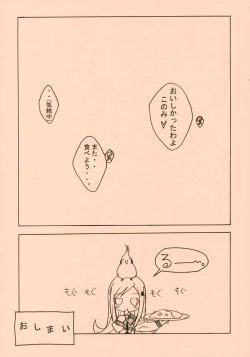 おいしかったわよ
このみ♥
また・・
食べよう・・・
・・(気絶中)
るーー。
もぐ
もぐ
もぐ
もぐ
おしまい